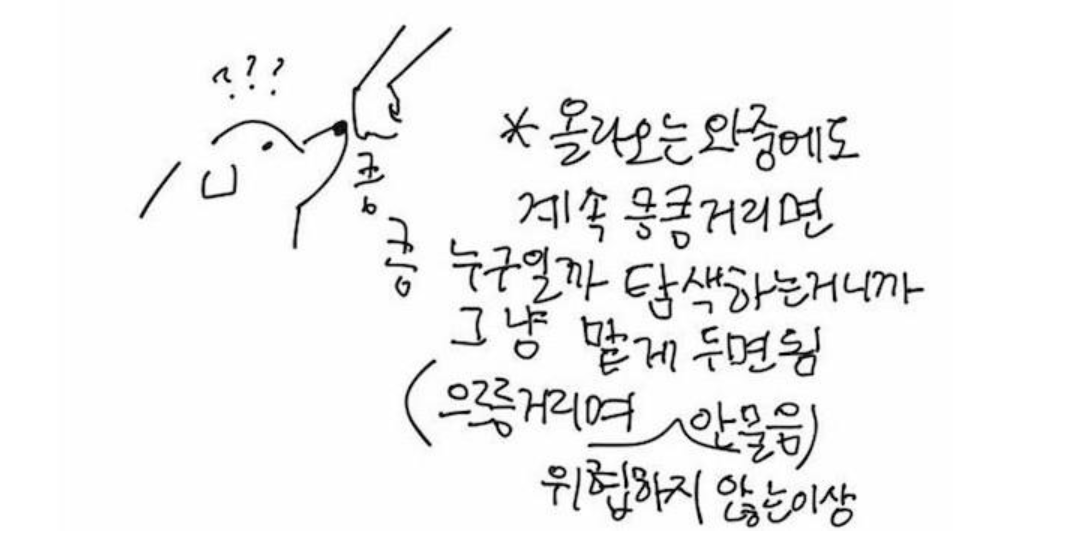 ???
킁
킁
* 올라오는 와중에도
계속 킁킁거리면
누구일까 탐색하는거니까
그냥 맡게 두면됨
(으르릉거리며 안물음)
위협하지 않는이상